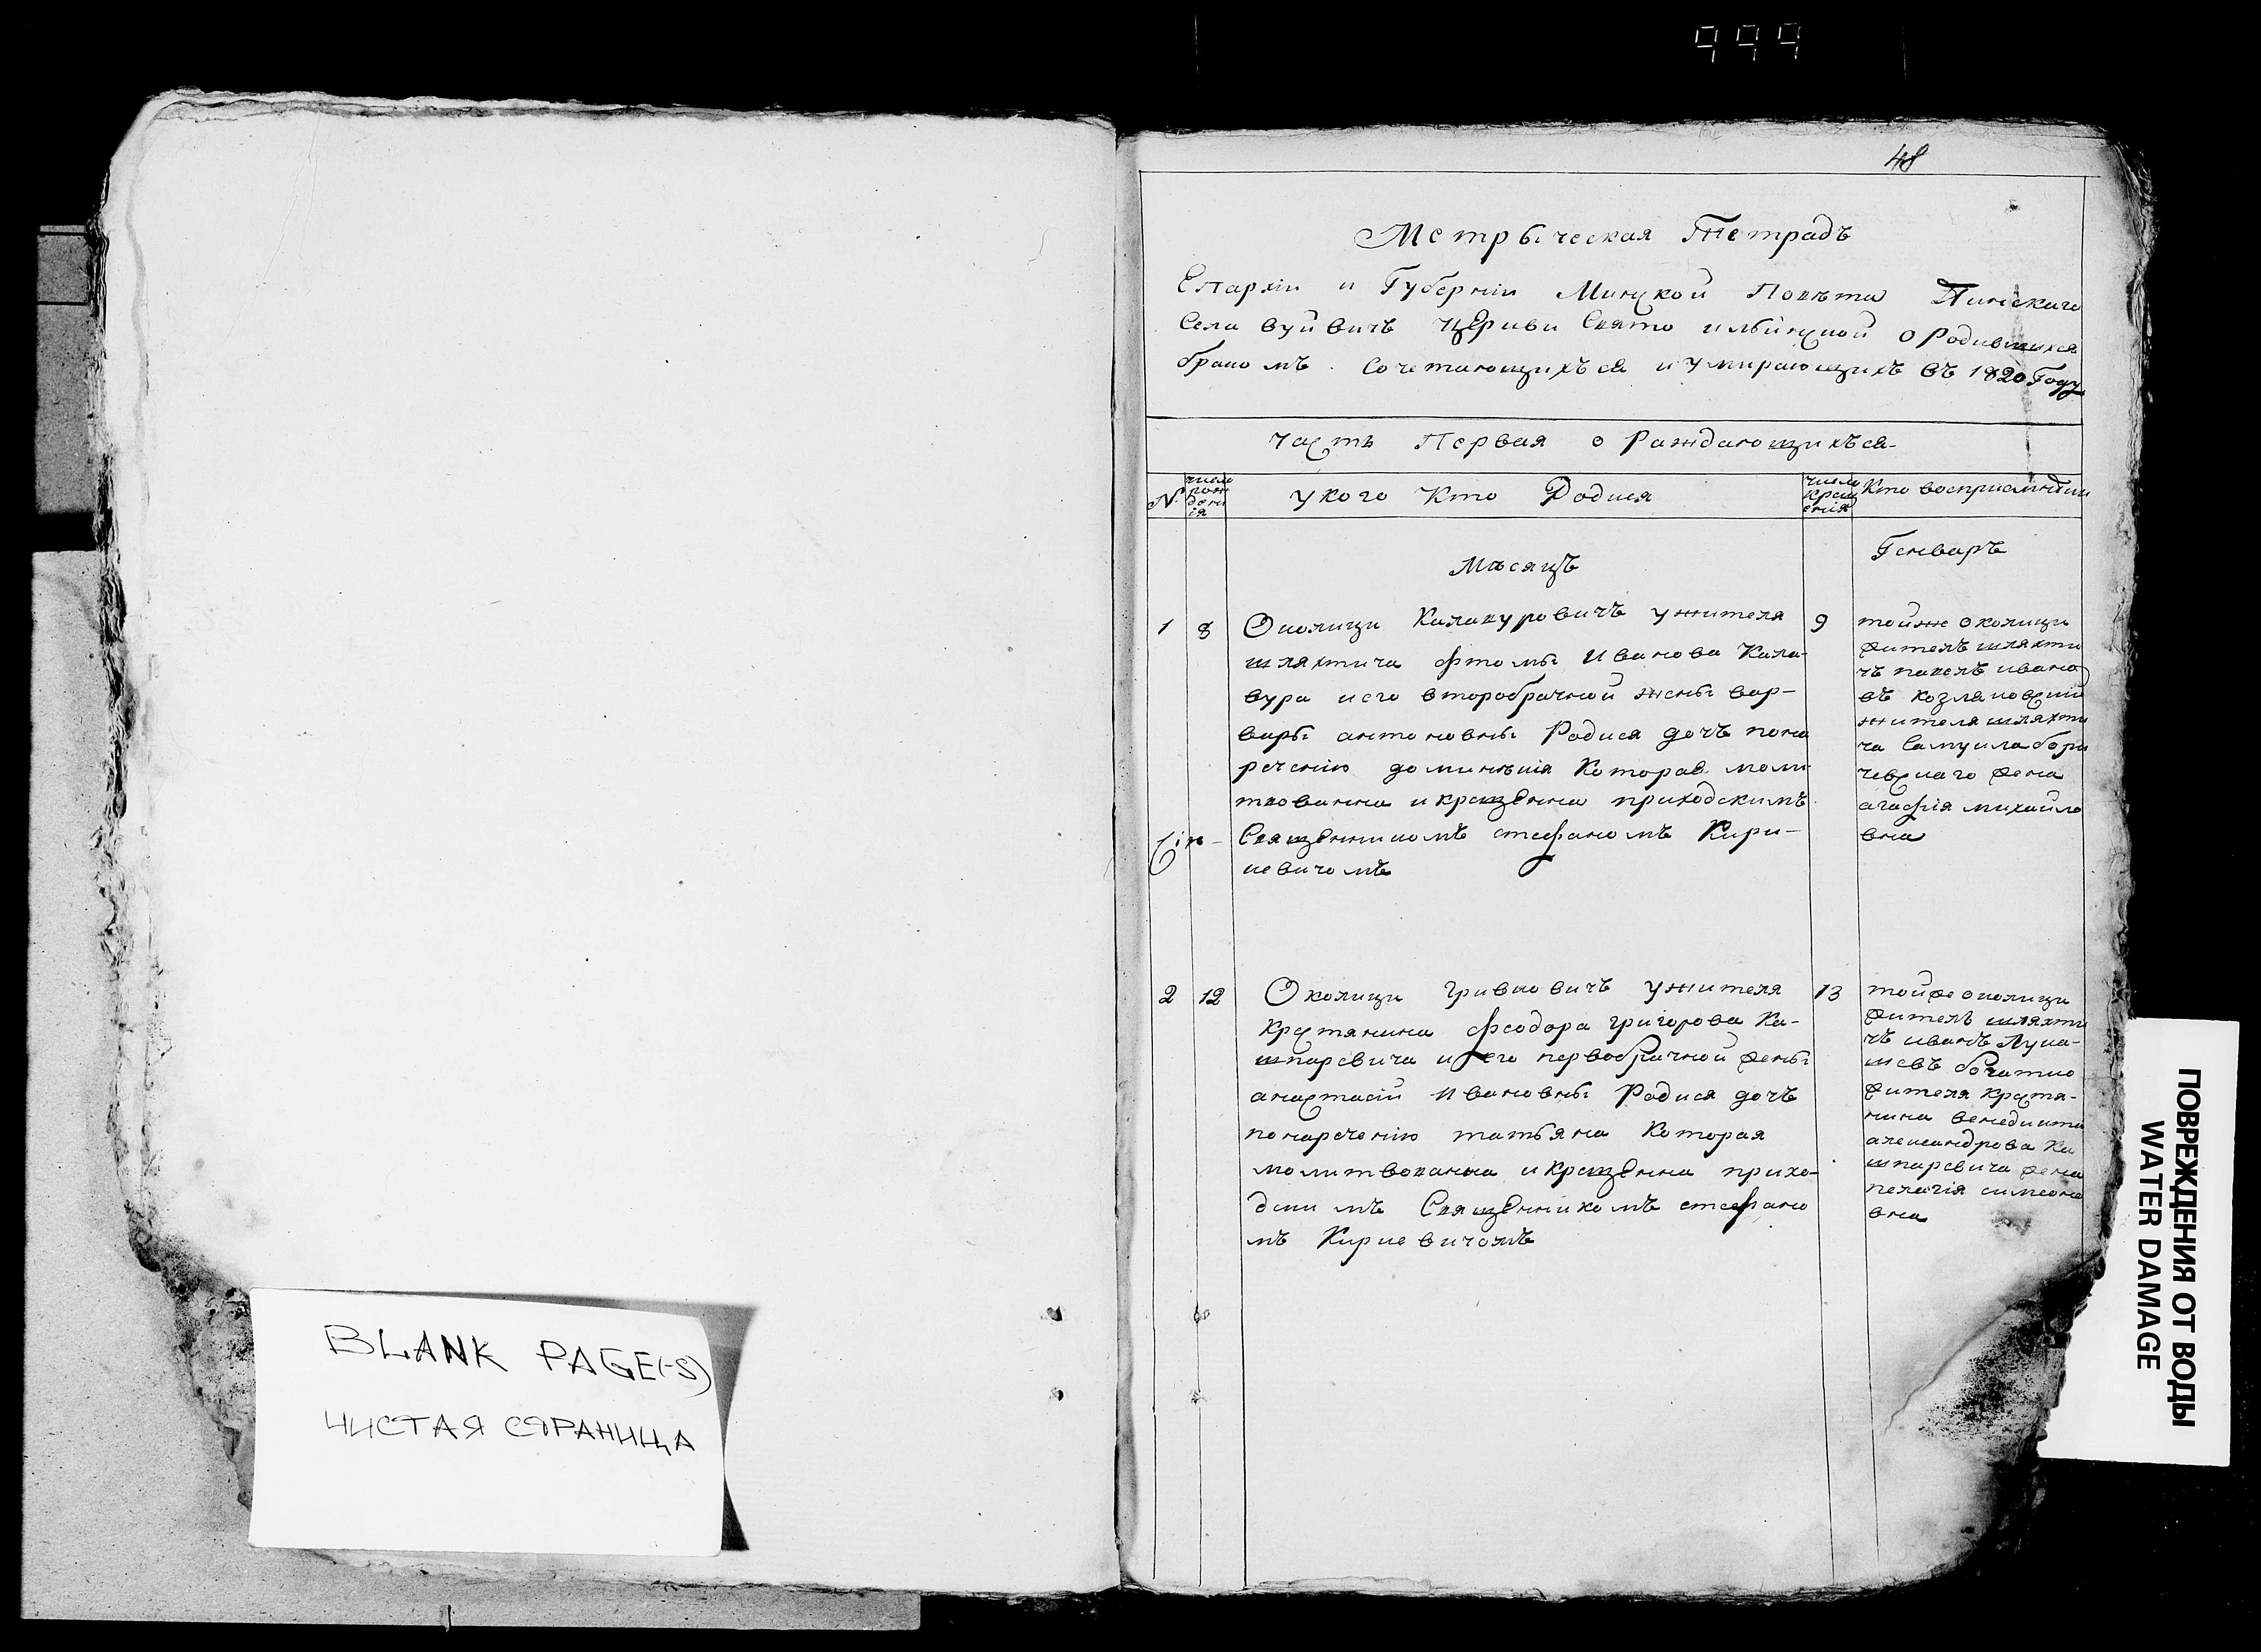 999
48
Метрыческая Тетрадь
Епархіи и Губерніи Минской Повѣта Пинскаго
Села Вуйвичь Церкви Свято ильинской о Родившихся
бракомъ сочетающихъся и умирающихъ въ 1820 Году
Часть Первая о Раждающихъся
№
число рожденія
у кого Кто Родися
число крещенія
Кто восприемники
Мѣсяцъ
Генваръ
1
8
Околицы Калавуровичъ у жителя
шляхтича фтомы Иванова Кала-
вура и его второбрачной жены вар-
вары антоновны Родися дочъ пона
речению доминикія Которая моли
твованна и крещенна приходскимъ
Священникомъ стефаномъ Кири-
невичомъ
9
тойже околицы
жителъ шляхти
чъ павелъ ивано
въ козляковский
жителя шляхти
ча Самуила бори
чевскаго жена
агафія михайло
вна
2
12
Околицы Гривковичъ у жителя
Крестянина феодора григорова Ка-
шпаревича и его первобрачной жены
анастасий Ивановны Родися дочъ
по наречению татьяна Которая
молитвованна и крещенна прихо-
дскимъ Священникомъ стефано
мъ Кириевичомъ
13
тойже околицы
жителъ шляхти
чъ иванъ Лука-
шевъ богатко
жителя Крестя-
нина венедикта
александрова Ка
шпаревича жена
пелагія симеоно
вна
BLANK PAGE(-S)
ЧИСТАЯ СТРАНИЦА
ПОВРЕЖДЕНИЯ ОТ ВОДЫ
WATER DAMAGE